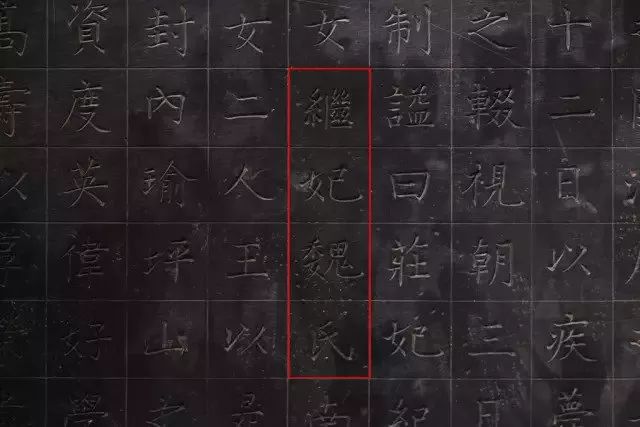 十二日以疾薨
之輟視朝三日
制諡曰莊妃
女繼妃魏氏南
女二人王以
封內瑜坪山之
資度英偉好學
壽以